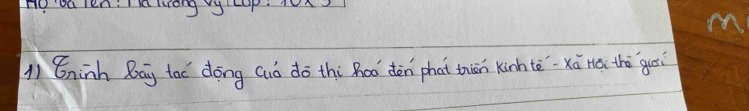 Họ và tên: Hà Lương Vy Lớp: 10x3
1) Trình Bày tác động của đô thị hoá đến phát triển kinh tế - Xã Hội thế giới